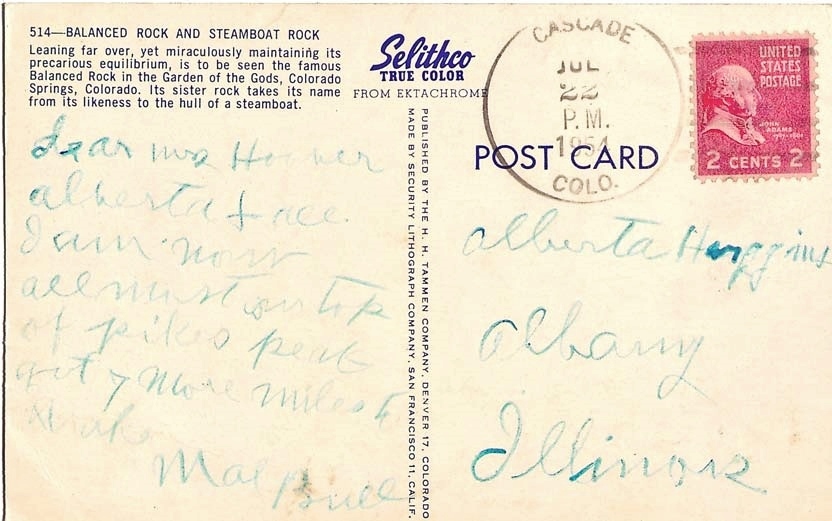 514—BALANCED ROCK AND STEAMBOAT ROCK
Leaning far over, yet miraculously maintaining its
precarious equilibrium, is to be seen the famous
Balanced Rock in the Garden of the Gods, Colorado
Springs, Colorado. Its sister rock takes its name
from its likeness to the hull of a steamboat.
Selithco
TRUE COLOR
FROM EKTACHROME
CASCADE
JUL
22
P.M.
1954
COLO.
UNITED
STATES
POSTAGE
JOHN
ADAMS
2 CENTS 2
POST CARD
Dear Mrs Hoover
alberta & all.
I am now
allmost on top
of pikes peak
got 7 more miles to
make
Mae Buell
PUBLISHED BY THE H. H. TAMMEN COMPANY, DENVER 17, COLORADO
MADE BY SECURITY LITHOGRAPH COMPANY, SAN FRANCISCO 11, CALIF.
Alberta Huggins
Albany
Illinois